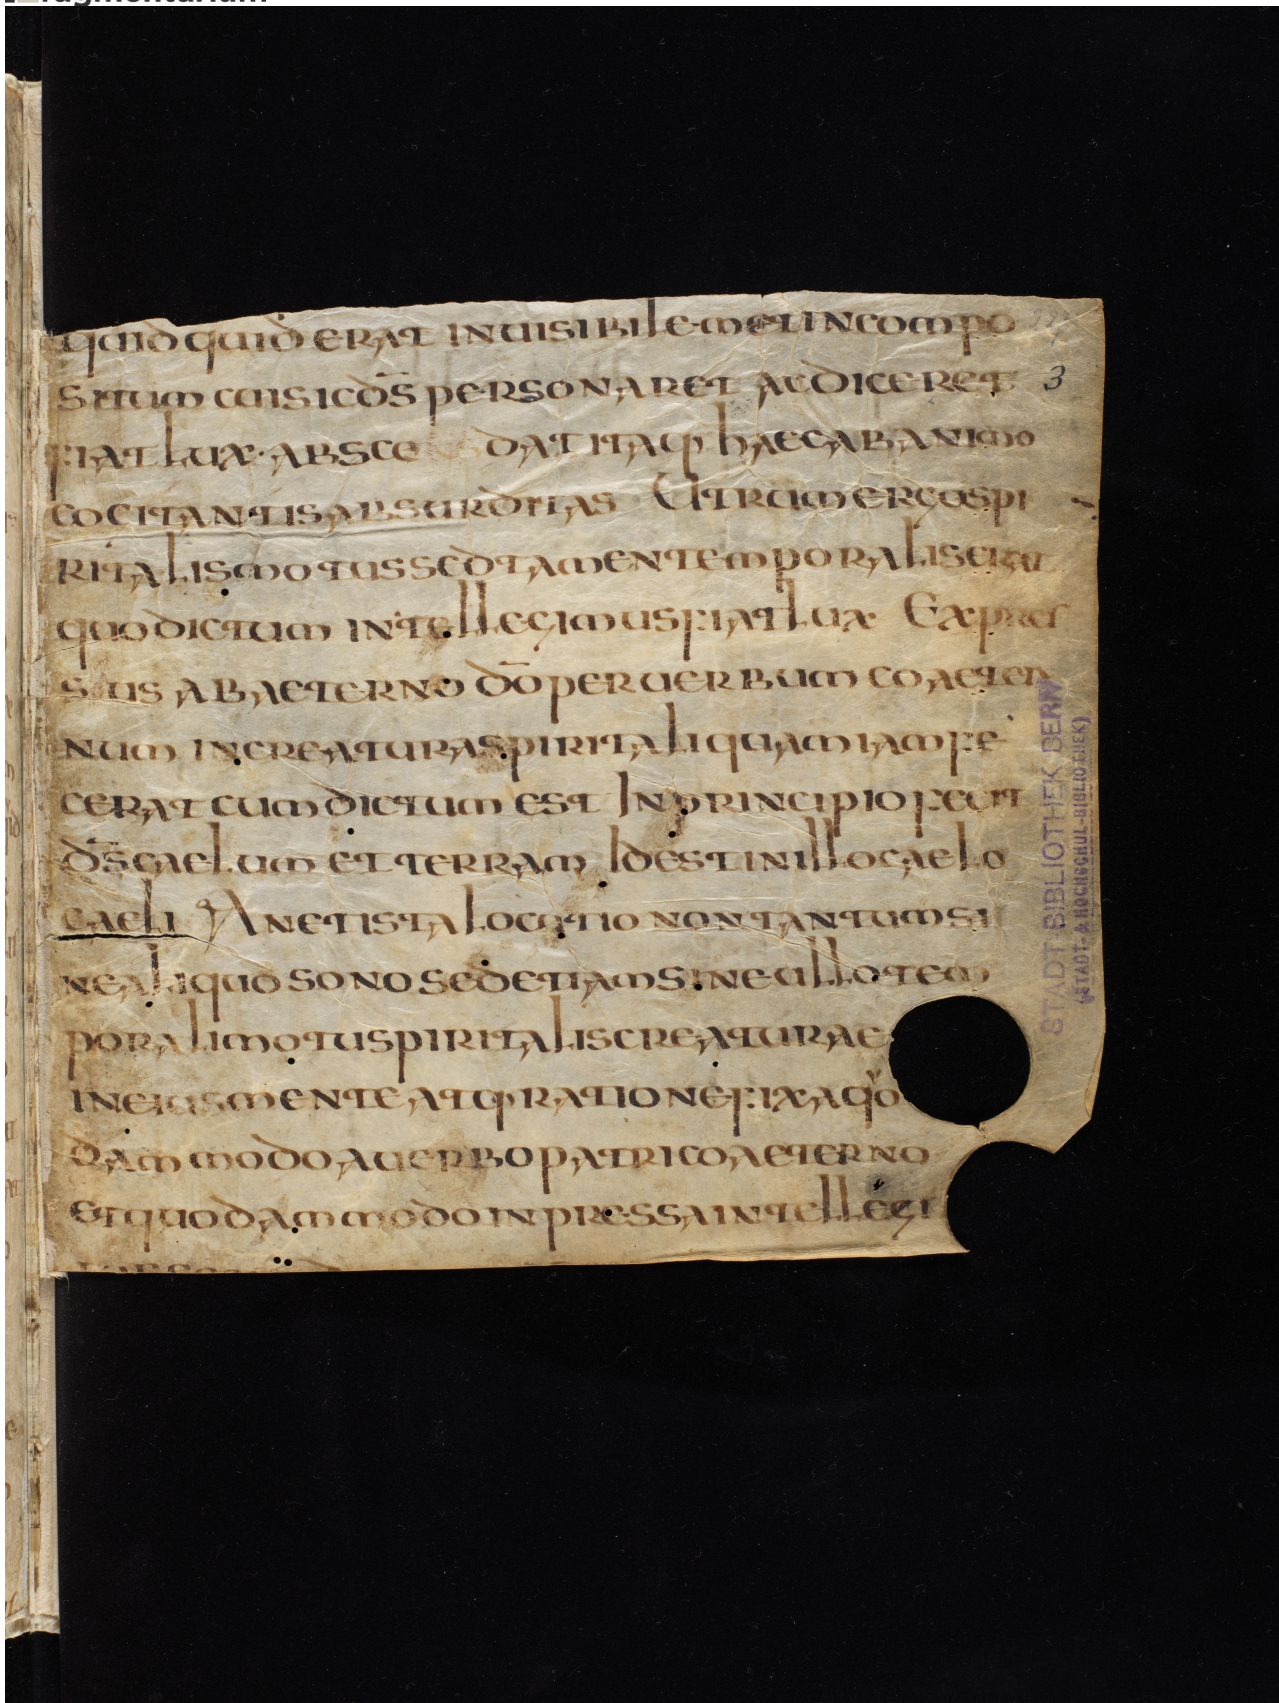 quidquid erat inuisibilem et incompo
situm cui sic d̅s̅ personaret ac diceret
fiat lux · absce dat itaq· haec ab animo
cogitantis absurditas Utrum ergo spi
ritalis motus sed tamen temporalis erat
quo dictum intellegimus fiat lux Expres
sus ab aeterno d̅o̅ per uerbum coaeter
num in creatura spiritali quam iam fe
cerat cum dictum est In principio fecit
d̅s̅ caelum et terram Id est in illo caelo
caeli An et ista locutio non tantum si
ne aliquo sono sed etiam sine ullo tem
porali motu spiritalis creaturae
in eius mente atq· ratione fixa quo
dam modo a uerbo patri coaeterno
et quodam modo inpressa intellegi
3
STADT-BIBLIOTHEK BERN
(STADT- & HOCHSCHUL-BIBLIOTHEK)